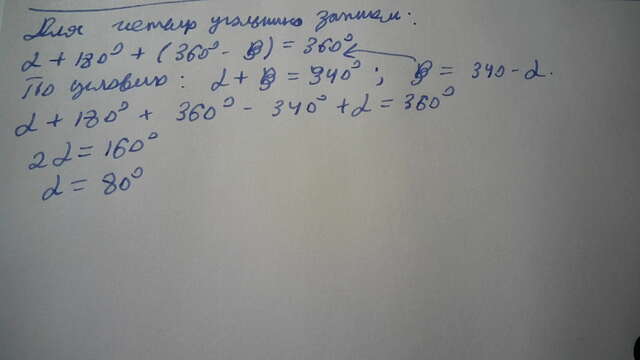 Для четырехугольника запишем:
α + 180° + (360° - β) = 360°
По условию: α + β = 340°; β = 340 - α.
α + 180° + 360° - 340° + α = 360°
2α = 160°
α = 80°